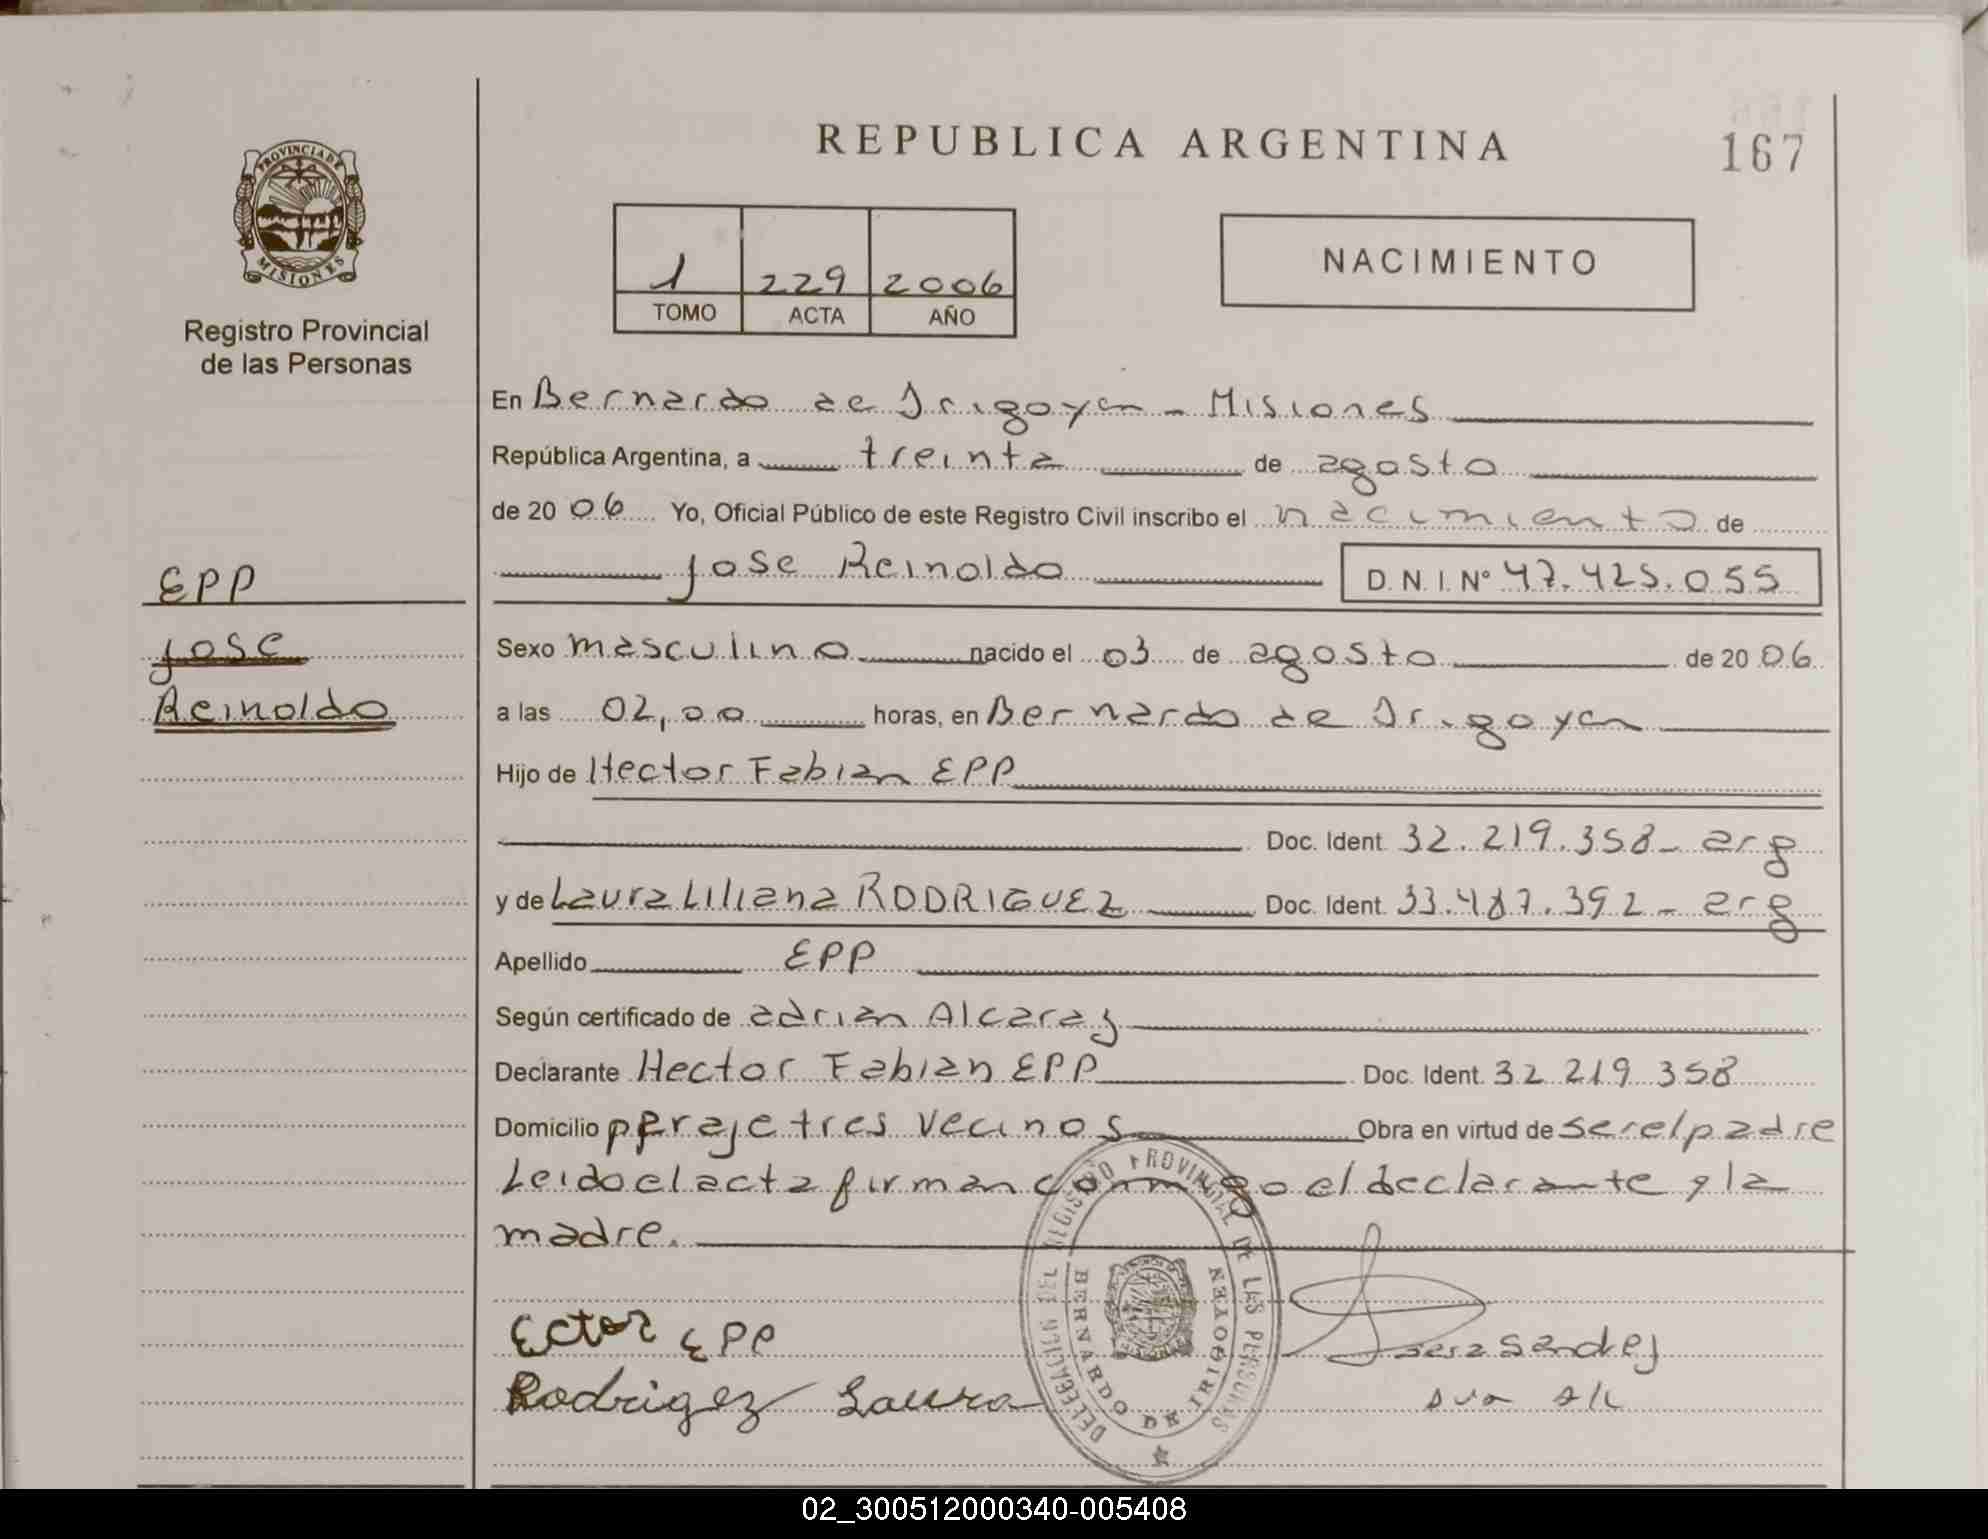 REPUBLICA ARGENTINA
167
PROVINCIA DE
MISIONES
Registro Provincial
de las Personas
1 229 2006
TOMO ACTA AÑO
NACIMIENTO
En Bernardo de Irigoyen - Misiones
República Argentina, a treinta de agosto
de 2006 Yo, Oficial Público de este Registro Civil inscribo el nacimiento de
Jose Reinoldo D.N.I. Nº 47.425.055
EPP
Jose
Reinoldo
Sexo masculino nacido el 03 de agosto de 2006
a las 02,00 horas, en Bernardo de Irigoyen
Hijo de Hector Fabian EPP
Doc. Ident. 32.219.358 - arg
y de Laura Liliana RODRIGUEZ Doc. Ident. 33.487.392 - arg
Apellido EPP
Según certificado de adrian Alcaraz
Declarante Hector Fabian EPP Doc. Ident. 32 219 358
Domicilio praje tres Vecinos Obra en virtud de ser el padre
Leido el acta firman conmigo el declarante y la
madre.
DELEGACION DEL REGISTRO PROVINCIAL DE LAS PERSONAS
BERNARDO DE IRIGOYEN
Ector EPP
Rodrigez Laura
02_300512000340-005408